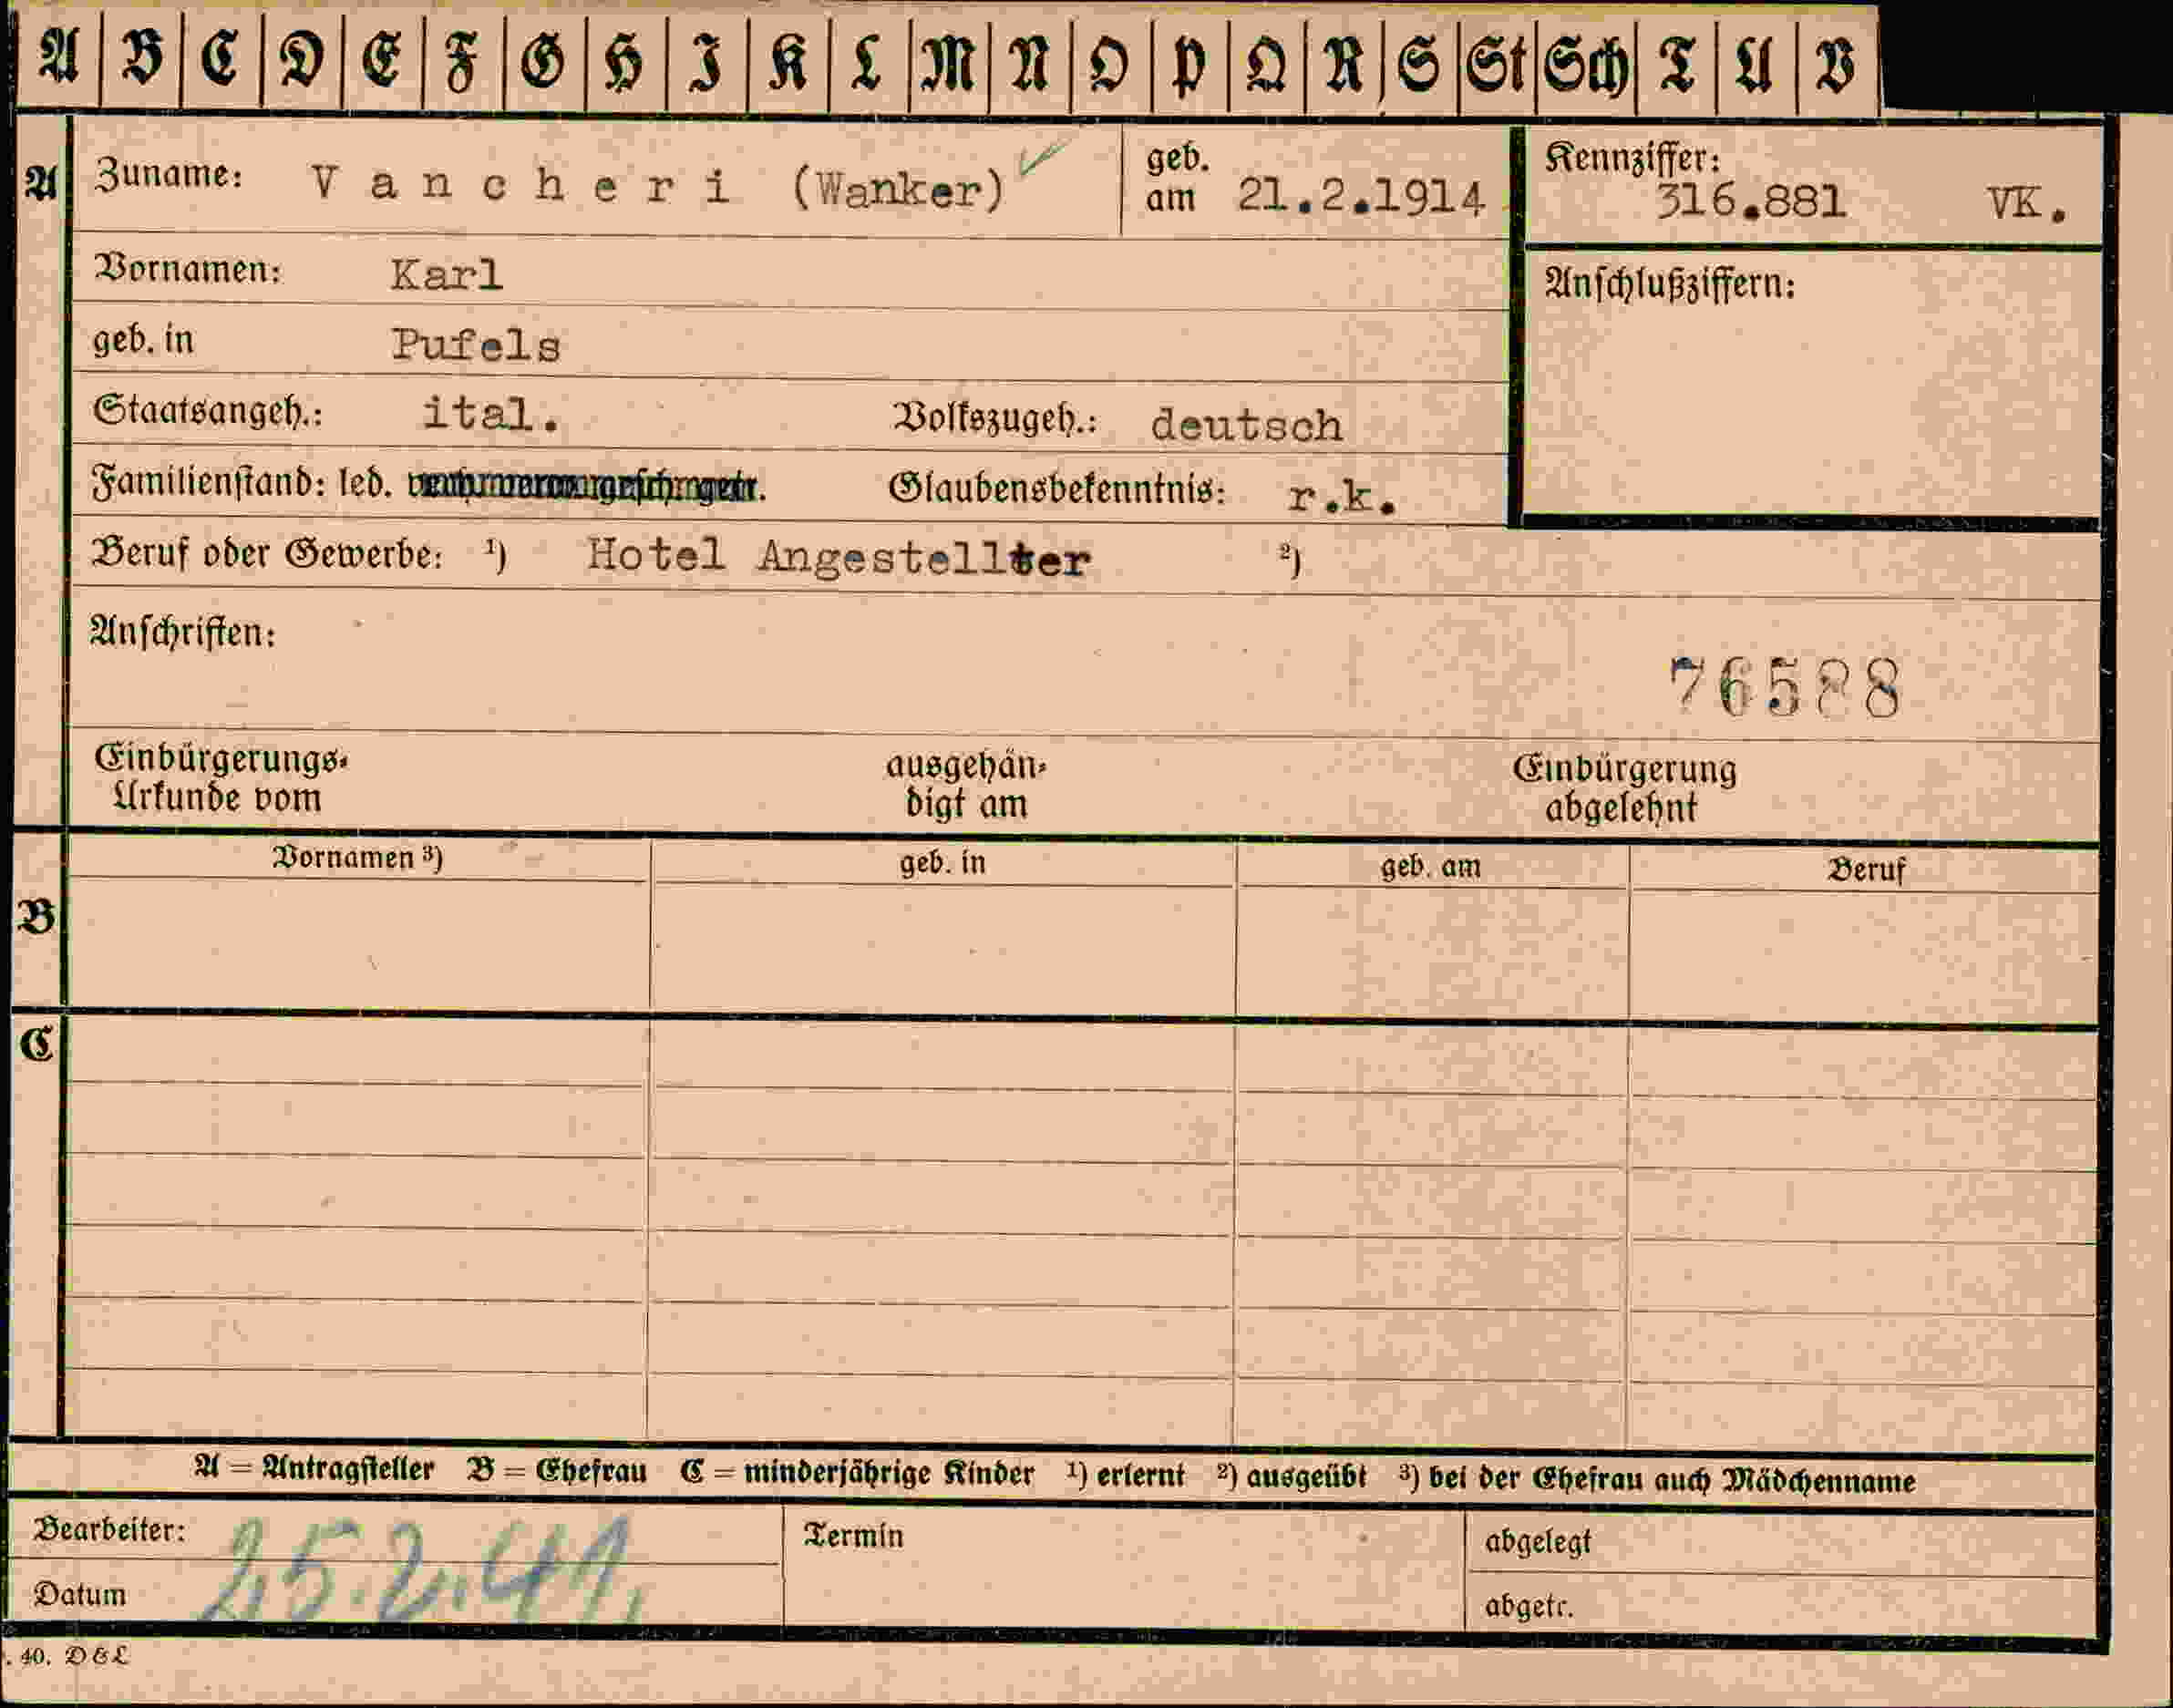 A B C D E F G H I K L M N O P Q R S St Sch T U V
A Zuname: Vancheri (Wanker) ✓ geb. am 21.2.1914 Kennziffer: 316.881 VK.
Vornamen: Karl Anschlußziffern:
geb. in Pufels
Staatsangeh.: ital. Volkszugeh.: deutsch
Familienstand: led. Glaubensbekenntnis: r.k.
Beruf oder Gewerbe: ¹) Hotel Angestellter ²)
Anschriften:
76588
Einbürgerungs-Urkunde vom ausgehän-digt am Einbürgerung abgelehnt
Vornamen ³) geb. in geb. am Beruf
B
C
A = Antragsteller B = Ehefrau C = minderjährige Kinder ¹) erlernt ²) ausgeübt ³) bei der Ehefrau auch Mädchenname
Bearbeiter: Termin abgelegt
Datum 25.2.41. abgetr.
. 40. D & L